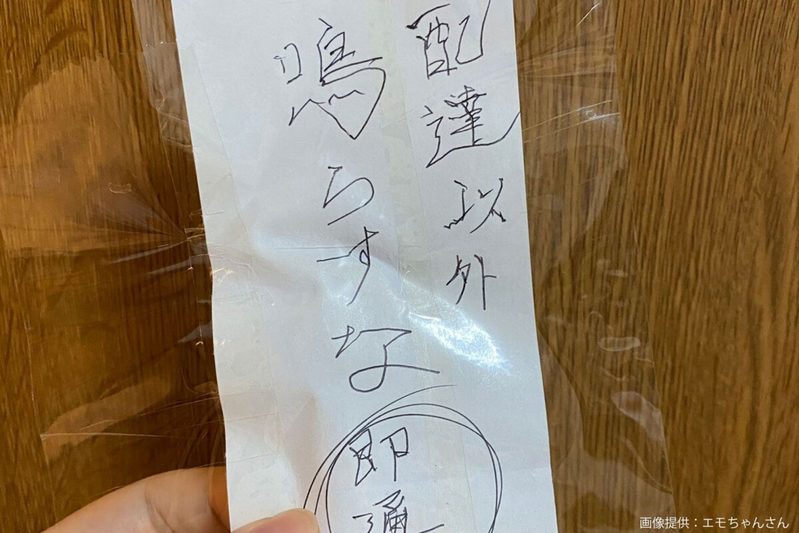 配達以外
鳴らすな
即通
画像提供：エモちゃんさん